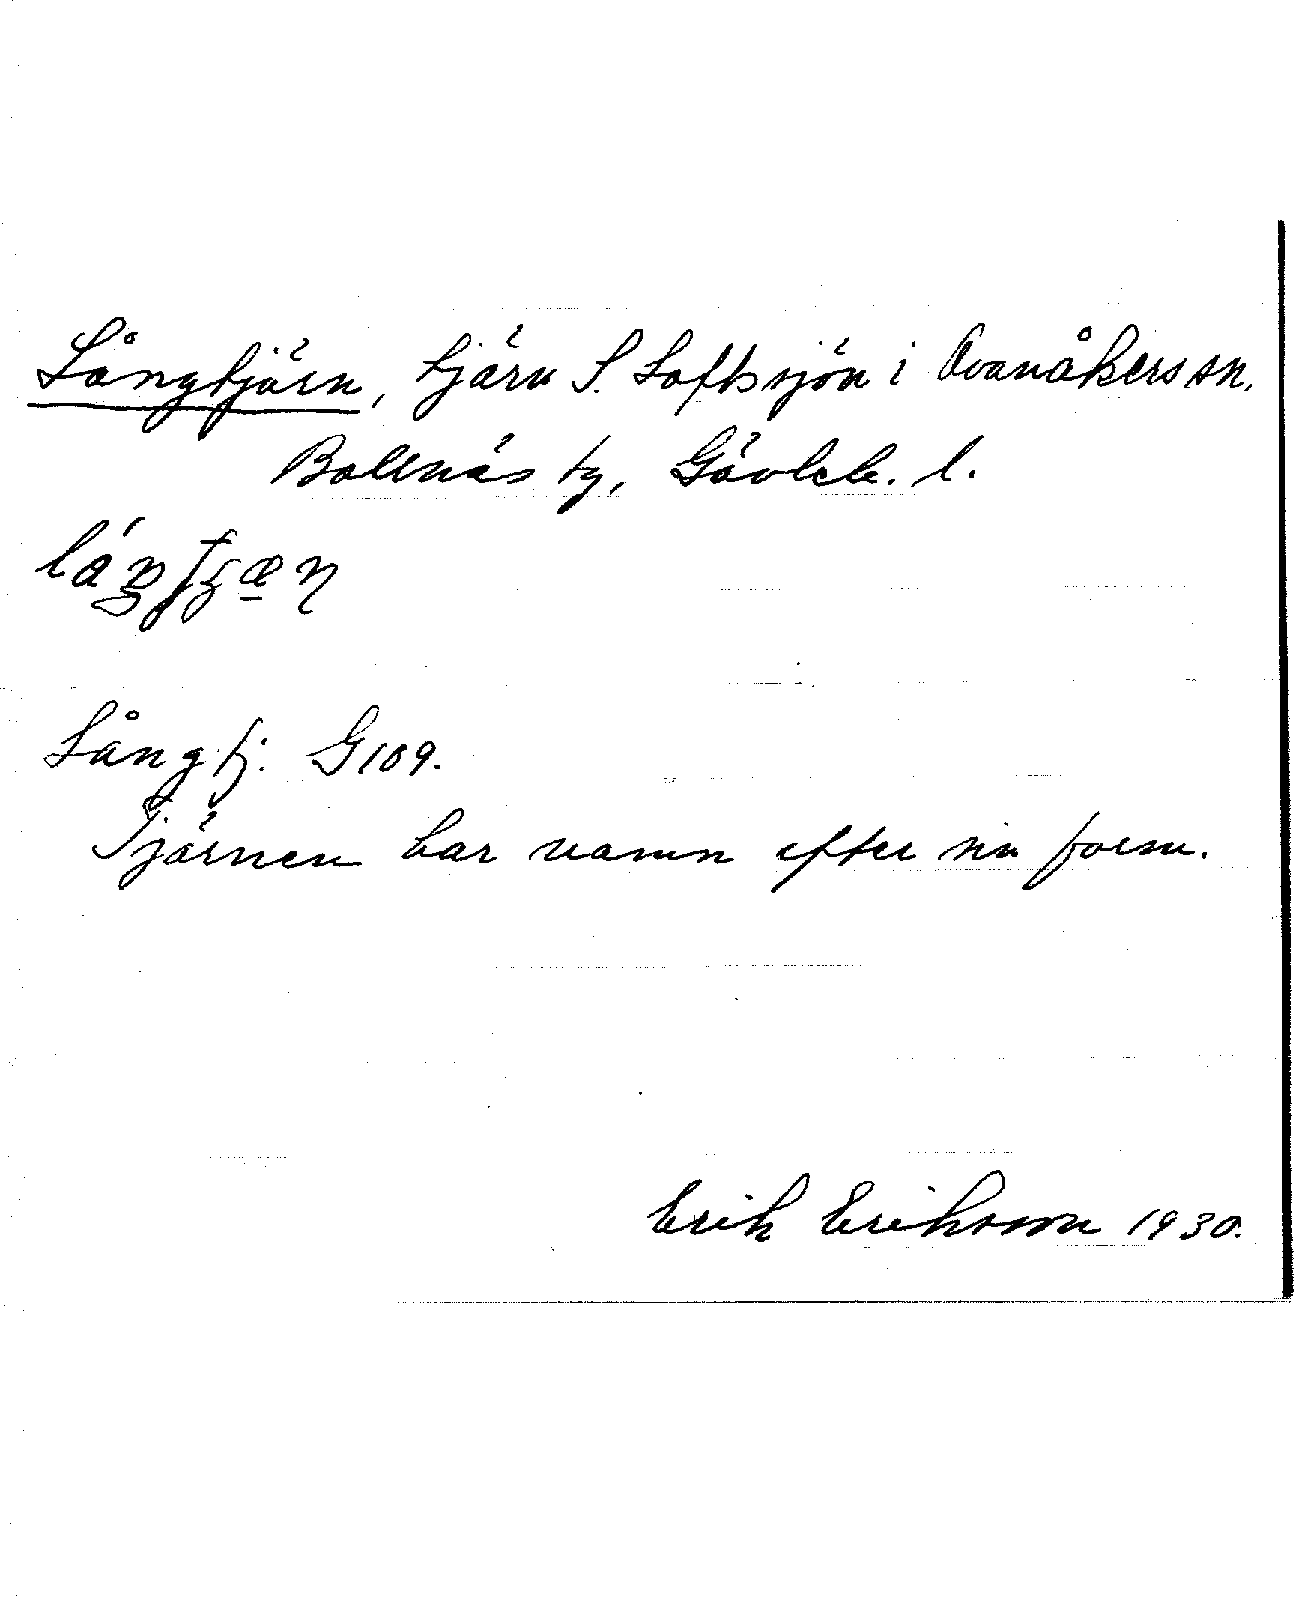 Långtjärn, tjärn S. Loftssjön i Ovanåkers sn.
Bollnäs tg, Gävleb. l.
Långtj. G109.
Tjärnen har namn efter sin form.
Erik Eriksson 1930.